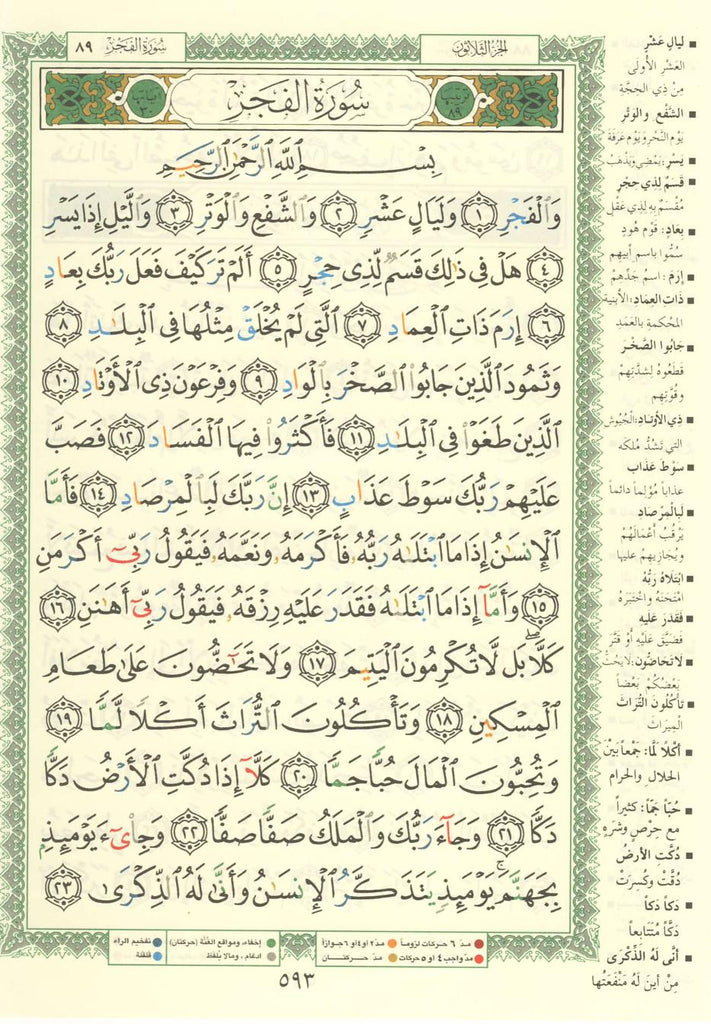 سُورَةُ الفَجْرِ ٨٩
الجُزءُ الثَّلَاثُون
سُورَةُ الفَجْرِ
تَرتيبها ٨٩
آياتها ٣٠
بِسْمِ ٱللَّهِ ٱلرَّحْمَٰنِ ٱلرَّحِيمِ
وَٱلْفَجْرِ ١ وَلَيَالٍ عَشْرٍ ٢ وَٱلشَّفْعِ وَٱلْوَتْرِ ٣ وَٱلَّيْلِ إِذَا يَسْرِ
٤ هَلْ فِى ذَٰلِكَ قَسَمٌ لِّذِى حِجْرٍ ٥ أَلَمْ تَرَ كَيْفَ فَعَلَ رَبُّكَ بِعَادٍ
٦ إِرَمَ ذَاتِ ٱلْعِمَادِ ٧ ٱلَّتِى لَمْ يُخْلَقْ مِثْلُهَا فِى ٱلْبِلَٰدِ ٨
وَثَمُودَ ٱلَّذِينَ جَابُوا۟ ٱلصَّخْرَ بِٱلْوَادِ ٩ وَفِرْعَوْنَ ذِى ٱلْأَوْتَادِ ١٠
ٱلَّذِينَ طَغَوْا۟ فِى ٱلْبِلَٰدِ ١١ فَأَكْثَرُوا۟ فِيهَا ٱلْفَسَادَ ١٢ فَصَبَّ
عَلَيْهِمْ رَبُّكَ سَوْطَ عَذَابٍ ١٣ إِنَّ رَبَّكَ لَبِٱلْمِرْصَادِ ١٤ فَأَمَّا
ٱلْإِنسَٰنُ إِذَا مَا ٱبْتَلَىٰهُ رَبُّهُۥ فَأَكْرَمَهُۥ وَنَعَّمَهُۥ فَيَقُولُ رَبِّىٓ أَكْرَمَنِ
١٥ وَأَمَّآ إِذَا مَا ٱبْتَلَىٰهُ فَقَدَرَ عَلَيْهِ رِزْقَهُۥ فَيَقُولُ رَبِّىٓ أَهَٰنَنِ ١٦
كَلَّا ۖ بَل لَّا تُكْرِمُونَ ٱلْيَتِيمَ ١٧ وَلَا تَحَٰٓضُّونَ عَلَىٰ طَعَامِ
ٱلْمِسْكِينِ ١٨ وَتَأْكُلُونَ ٱلتُّرَاثَ أَكْلًا لَّمًّا ١٩
وَتُحِبُّونَ ٱلْمَالَ حُبًّا جَمًّا ٢٠ كَلَّآ إِذَا دُكَّتِ ٱلْأَرْضُ دَكًّا
دَكًّا ٢١ وَجَآءَ رَبُّكَ وَٱلْمَلَكُ صَفًّا صَفًّا ٢٢ وَجِا۟ىٓءَ يَوْمَئِذٍۭ
بِجَهَنَّمَ ۚ يَوْمَئِذٍ يَتَذَكَّرُ ٱلْإِنسَٰنُ وَأَنَّىٰ لَهُ ٱلذِّكْرَىٰ ٢٣
لَيالٍ عَشْرٍ
العَشْرِ الأُولَى
مِنْ ذِي الحِجَّةِ
الشَّفْعِ والوَتْرِ
يَوْمِ النَّحْرِ وَيَوْمِ عَرَفَةَ
يَسْرِ: يَمْضِي وَيَذْهَبُ
قَسَمٌ لِذِي حِجْرٍ
مُقْسَمٌ بِهِ لِذِي عَقْلٍ
بِعَادٍ: قَوْمِ هُودٍ
سُمُّوا باسمِ أبِيهِم
إرَمَ: اسمُ جَدِّهِمْ
ذَاتِ العِمَادِ: الأبنِيَةِ
المُحْكَمَةِ بِالعَمَدِ
جَابُوا الصَّخْرَ
قَطَعُوهُ لِشِدَّتِهِمْ
وقُوَّتِهِم
ذِي الأوتَادِ: الجُيُوشِ
التي تَشُدُّ مُلكَه
سَوْطَ عَذَابٍ
عَذَاباً مُؤلِماً دائماً
لَبِالْمِرْصَادِ
يَرْقُبُ أعْمَالَهُمْ
ويُجازِيهِم عليها
ابْتَلاهُ رَبُّهُ
امْتَحَنَهُ واخْتَبَرَهُ
فَقَدَرَ عَلَيه
فَضَيَّقَ عَلَيهِ أَوْ قَتَّرَ
لا تَحَاضُّونَ: لا يَحُثُّ
بَعضُكُمْ بَعْضاً
تَأكُلُونَ التُّرَاثَ
المِيرَاثَ
أَكْلاً لَمّاً: جَمْعاً بَيْنَ
الحَلالِ والحَرامِ
حُبّاً جَمّاً: كَثِيراً
مع حِرْصٍ وشَرَهٍ
دُكَّتِ الأرْضُ
دُقَّتْ وكُسِرَتْ
دَكّاً دَكّاً
دَكّاً مُتَتَابِعاً
أنَّى لَهُ الذِّكْرَى
مِنْ أينَ لَهُ مَنْفَعَتُها
مدّ ٦ حركات لزوماً مدّ ٢ او ٤ او ٦ جوازاً
مدّ واجب ٤ او ٥ حركات مدّ حركتان
إخفاء، ومواقع الغُنَّة (حركتان)
ادغام، ومالا يُلفظ
تفخيم الراء
قلقلة
٥٩٣